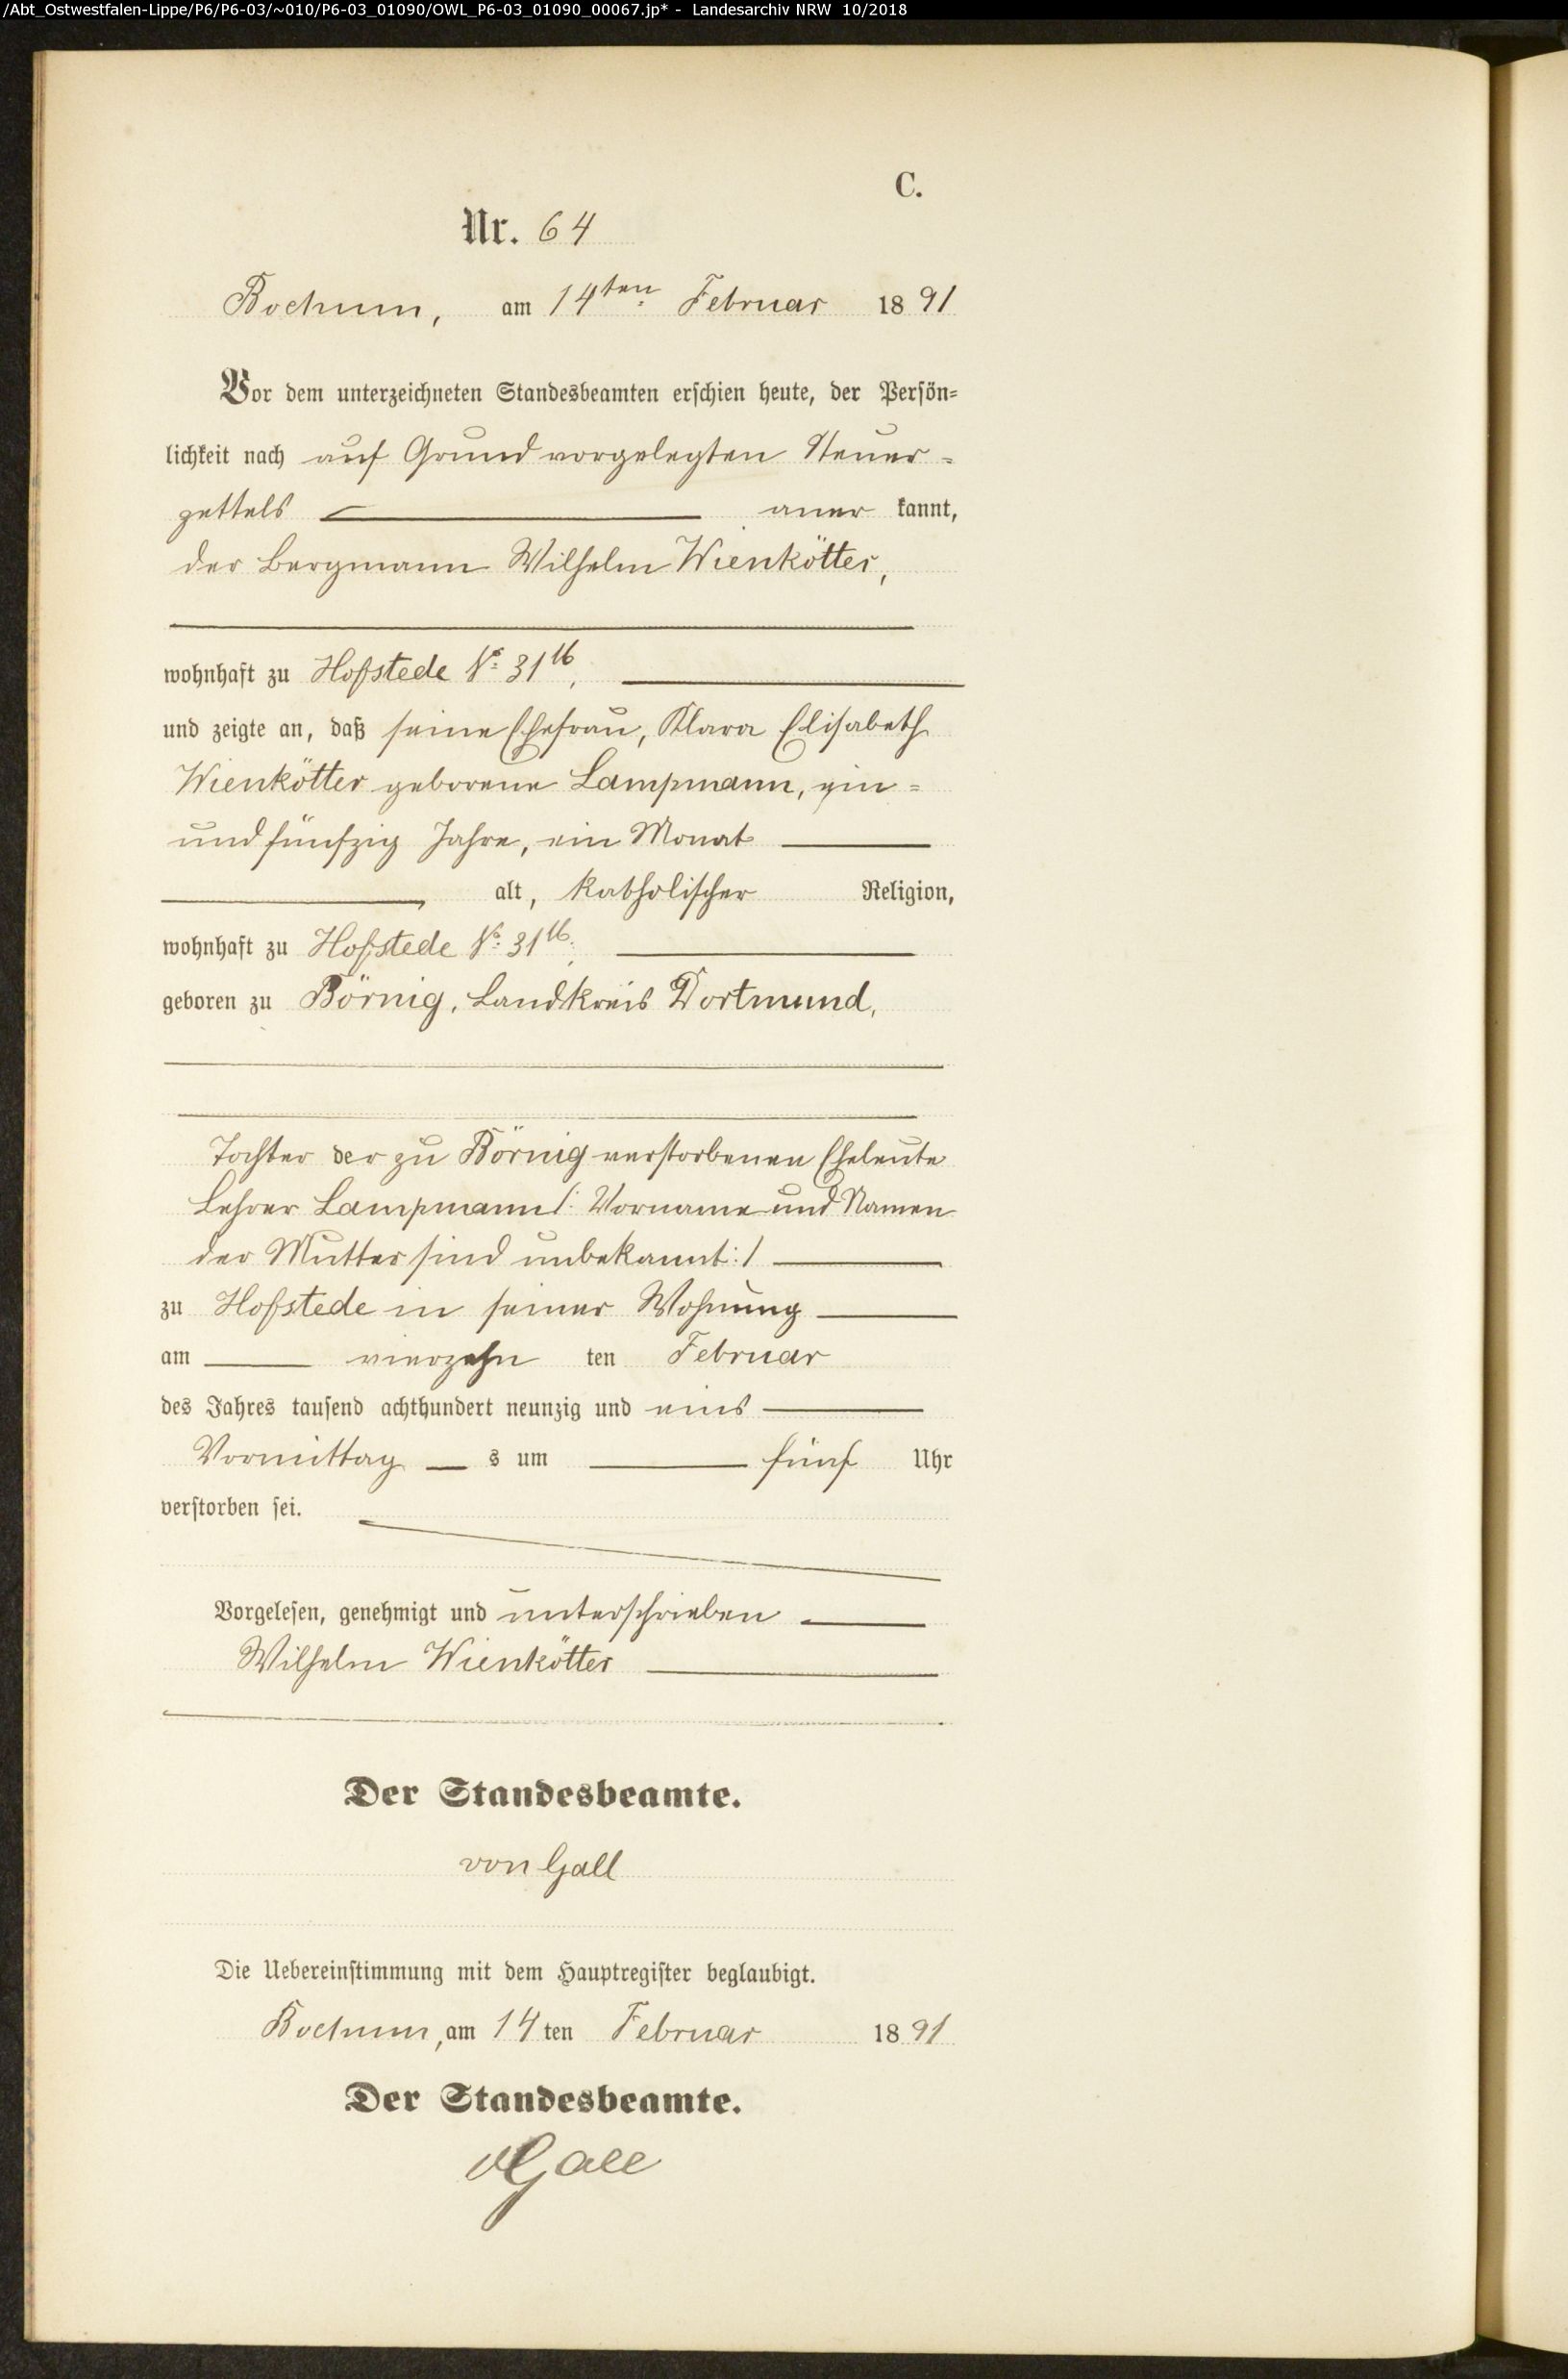 /Abt_Ostwestfalen-Lippe/P6/P6-03/~010/P6-03_01090/OWL_P6-03_01090_00067.jp* - Landesarchiv NRW 10/2018
C.
Nr. 64
Bochum, am 14ten Februar 1891
Vor dem unterzeichneten Standesbeamten erschien heute, der Persön-
lichkeit nach auf Grund vorgelegten Steuer-
zettels aner kannt,
der Bergmann Wilhelm Wienkötter,
wohnhaft zu Hofstede No 31
und zeigte an, daß seine Ehefrau, Klara Elisabeth
Wienkötter geborene Lampmann, ein-
und fünfzig Jahre, ein Monat
alt, katholischer Religion,
wohnhaft zu Hofstede No 31
geboren zu Börnig, Landkreis Dortmund,
Tochter der zu Börnig verstorbenen Eheleute
Lehrer Lampmann /: Vorname und Namen
der Mutter sind unbekannt :/
zu Hofstede in seiner Wohnung
am vierzehn ten Februar
des Jahres tausend achthundert neunzig und eins
Vormittag s um fünf Uhr
verstorben sei.
Vorgelesen, genehmigt und unterschrieben
Wilhelm Wienkötter
Der Standesbeamte.
von Gall
Die Uebereinstimmung mit dem Hauptregister beglaubigt.
Bochum, am 14 ten Februar 1891
Der Standesbeamte.
vGall